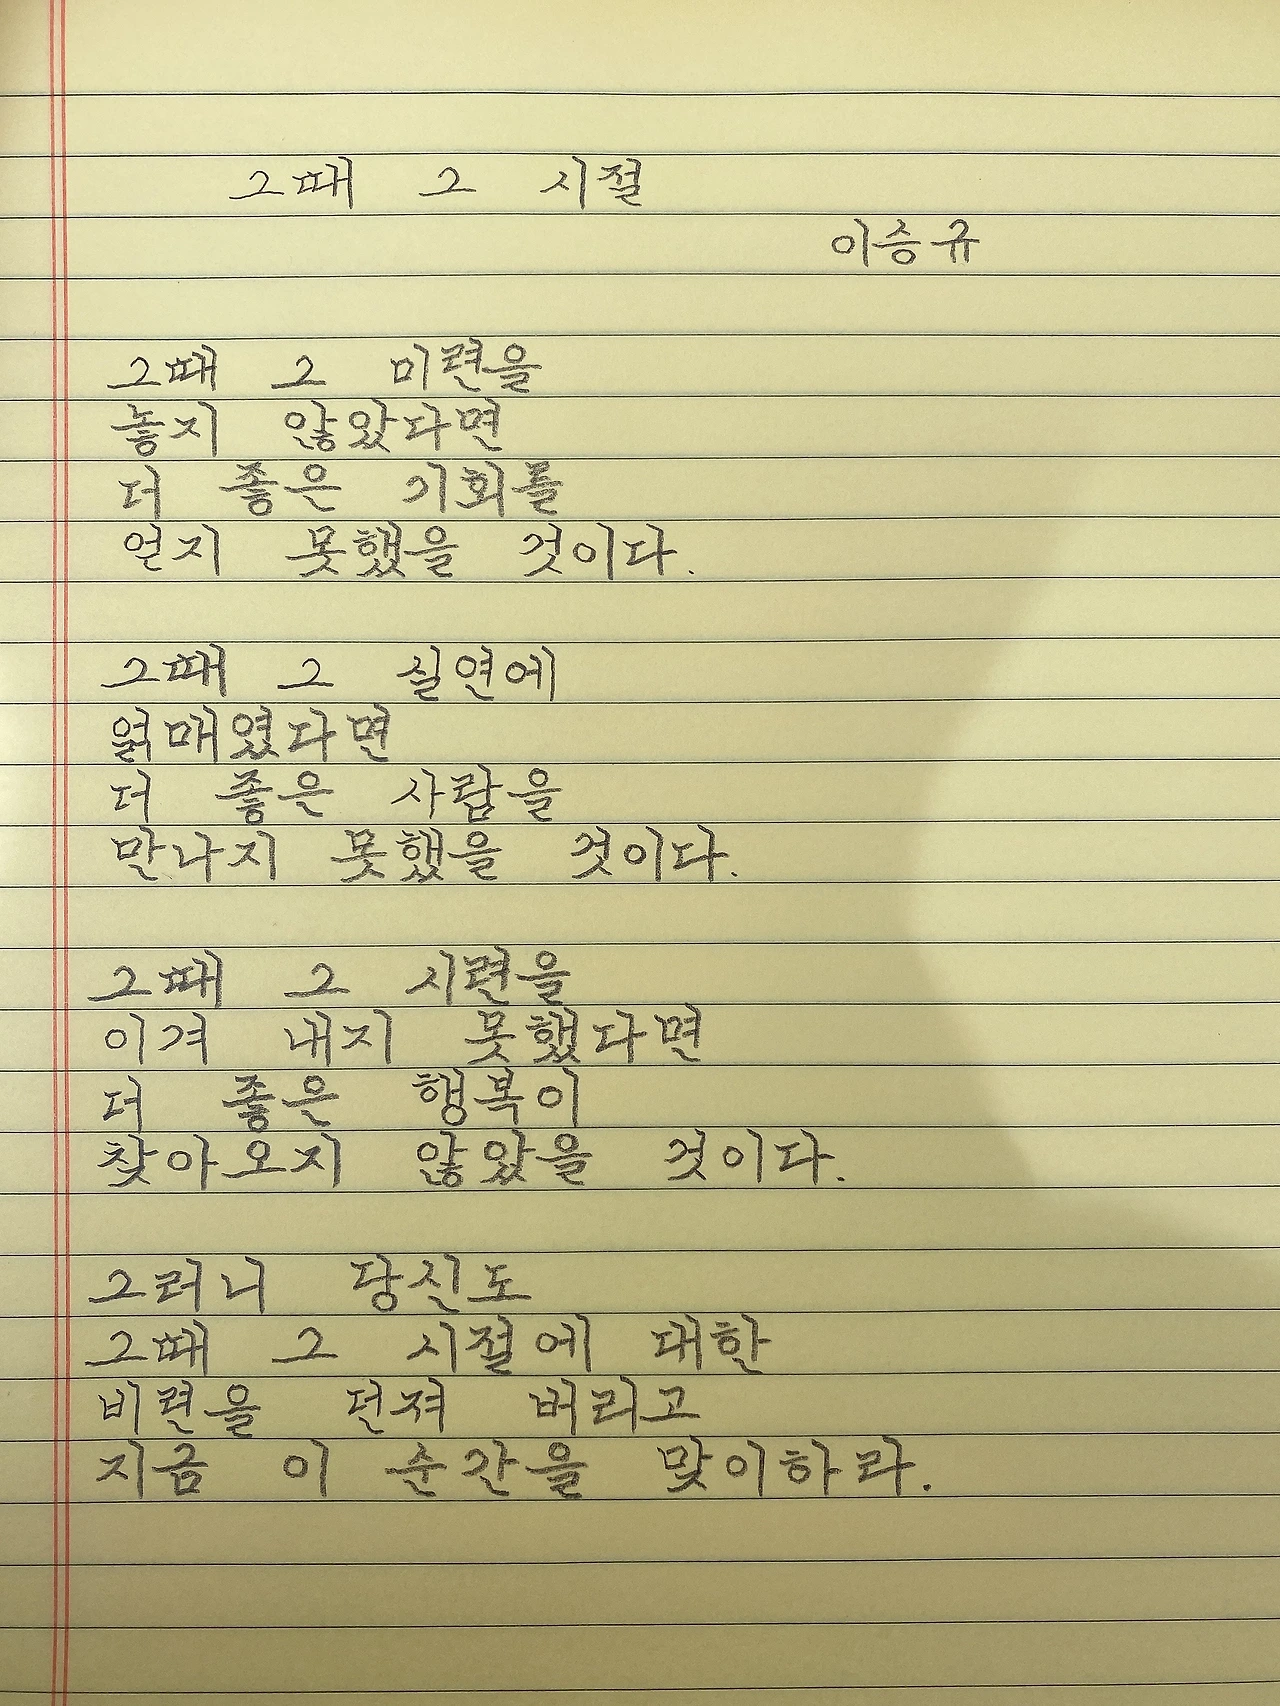 그때 그 시절
이승규
그때 그 미련을
놓지 않았다면
더 좋은 기회를
얻지 못했을 것이다.
그때 그 실연에
얽매였다면
더 좋은 사람을
만나지 못했을 것이다.
그때 그 시련을
이겨 내지 못했다면
더 좋은 행복이
찾아오지 않았을 것이다.
그러니 당신도
그때 그 시절에 대한
비련을 던져 버리고
지금 이 순간을 맞이하라.